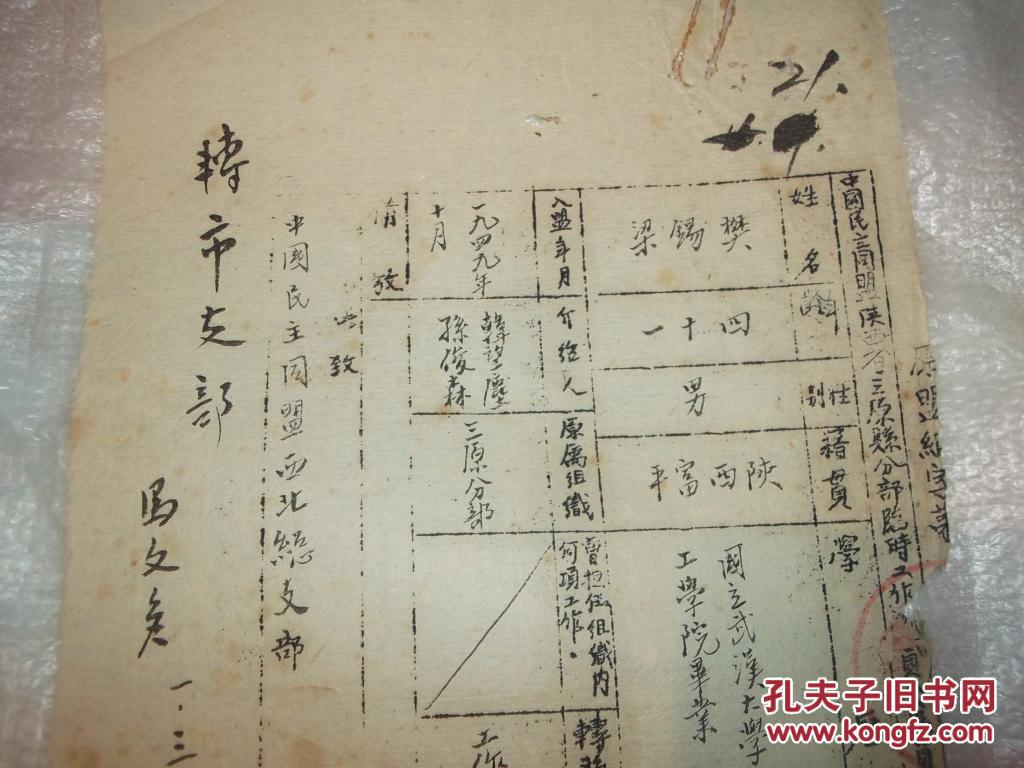 21.
中國民主同盟陝西省三原縣分部臨時工作
姓名
樊錫梁
年齡
四十一
性別
男
籍貫
陝西富平
學
國立武漢大學
工學院畢業
入盟年月
一九四九年
十月
介紹人
韓望塵
孫俊森
原屬組織
三原分部
曾担任組織內
何項工作。
轉
工作
備攷
此致
中國民主同盟西北總支部
轉市支部
馬文彥
一.三
孔夫子旧书网
www.kongfz.com